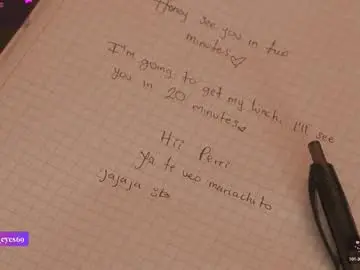 Honey see you in two
minutes♡
I'm going to get my lunch. I'll see
you in 20 minutes
Hii Perri
Ya te veo mariachito
jajaja
eyes69